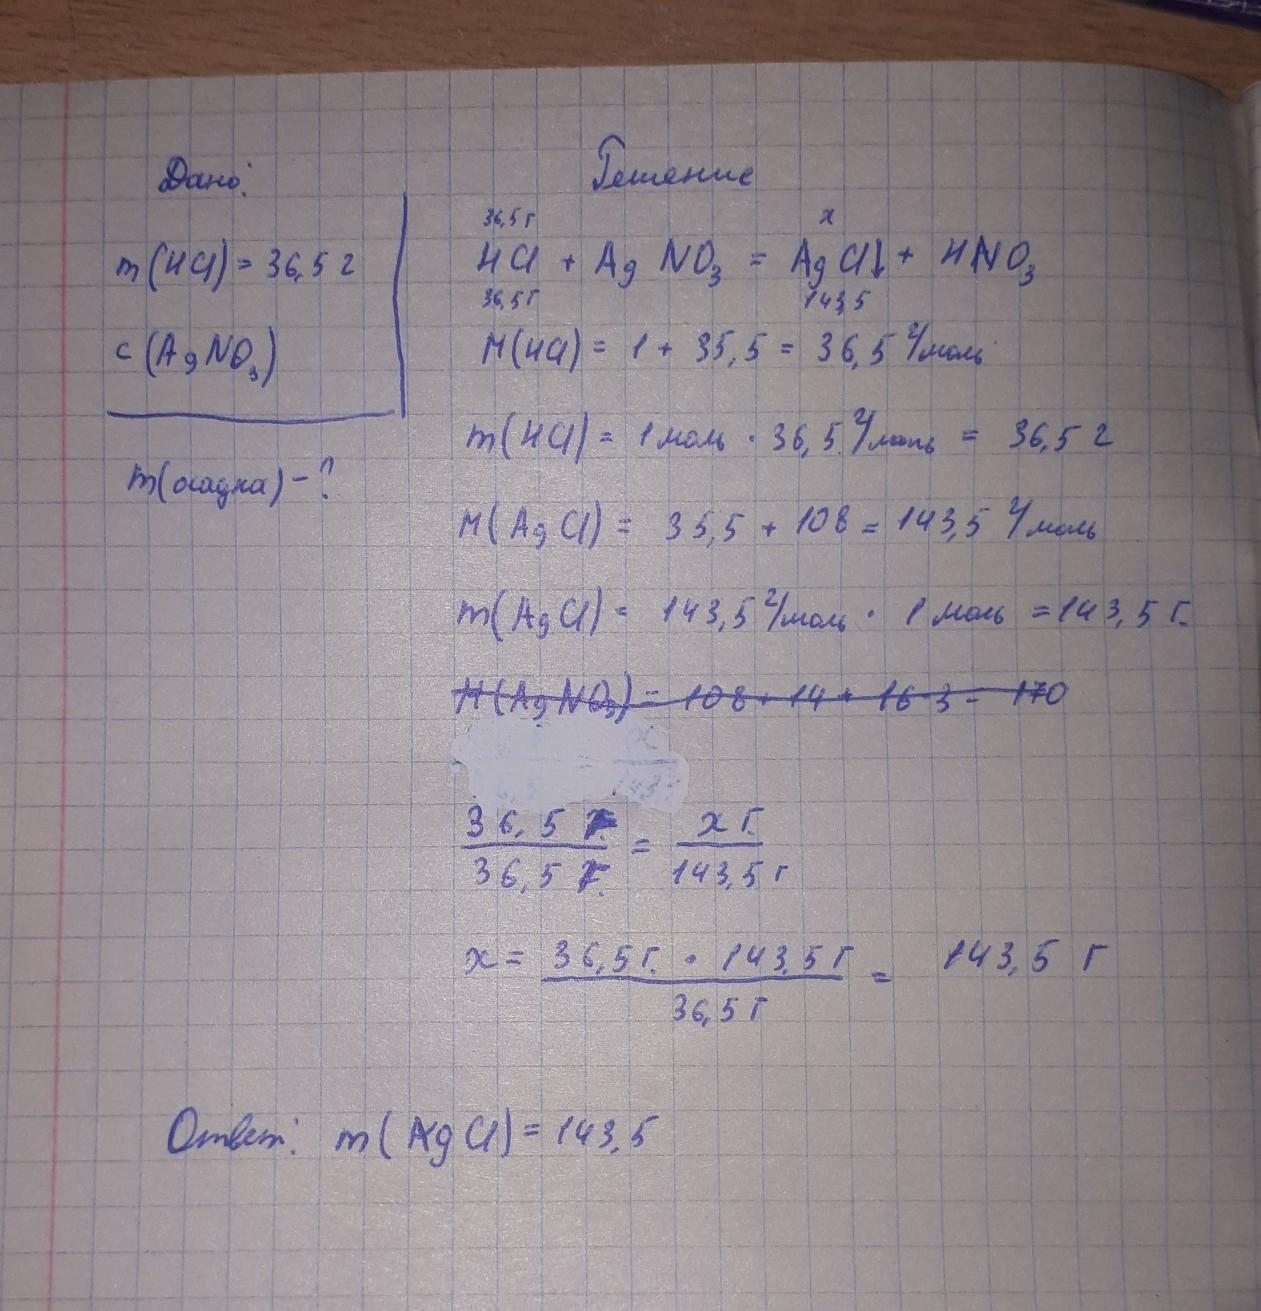 Дано:
Решение
m(HCl) = 36,5 г
c (AgNO₃)
m(осадка) - ?
36,5 г x
HCl + AgNO₃ = AgCl↓ + HNO₃
36,5 г 143,5
M(HCl) = 1 + 35,5 = 36,5 г/моль
m(HCl) = 1 моль · 36,5 г/моль = 36,5 г
M(AgCl) = 35,5 + 108 = 143,5 г/моль
m(AgCl) = 143,5 г/моль · 1 моль = 143,5 г.
M(AgNO₃) = 108 + 14 + 16·3 = 170
36,5 г. = x г.
36,5 г. 143,5 г
x = 36,5 г. · 143,5 г = 143,5 г
36,5 г
Ответ: m(AgCl) = 143,5